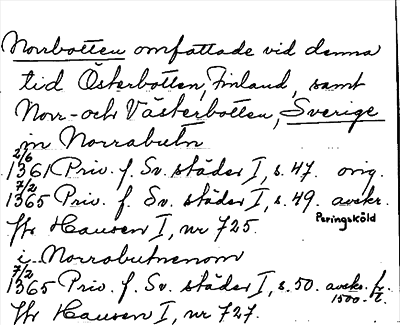 Norrbotten omfattade vid denna
tid Österbotten, Finland, samt
Norr- och Västerbotten, Sverige
in Norrabutn
2/6
1361 Priv. f. Sv. städer I, s. 47. orig.
7/2
1365 Priv. f. Sv. städer I, s. 49. avskr.
Peringsköld
Hausen I, nr 725.
i Norrabutnenom
7/2
1365 Priv. f. Sv. städer I, s. 50. avskr. fr.
1500-t.
Hausen I, nr 727.